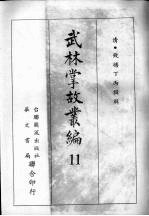 清•錢塘丁丙編刻
武林掌故叢編
11
台聯國風出版社
華文書局
聯合印行